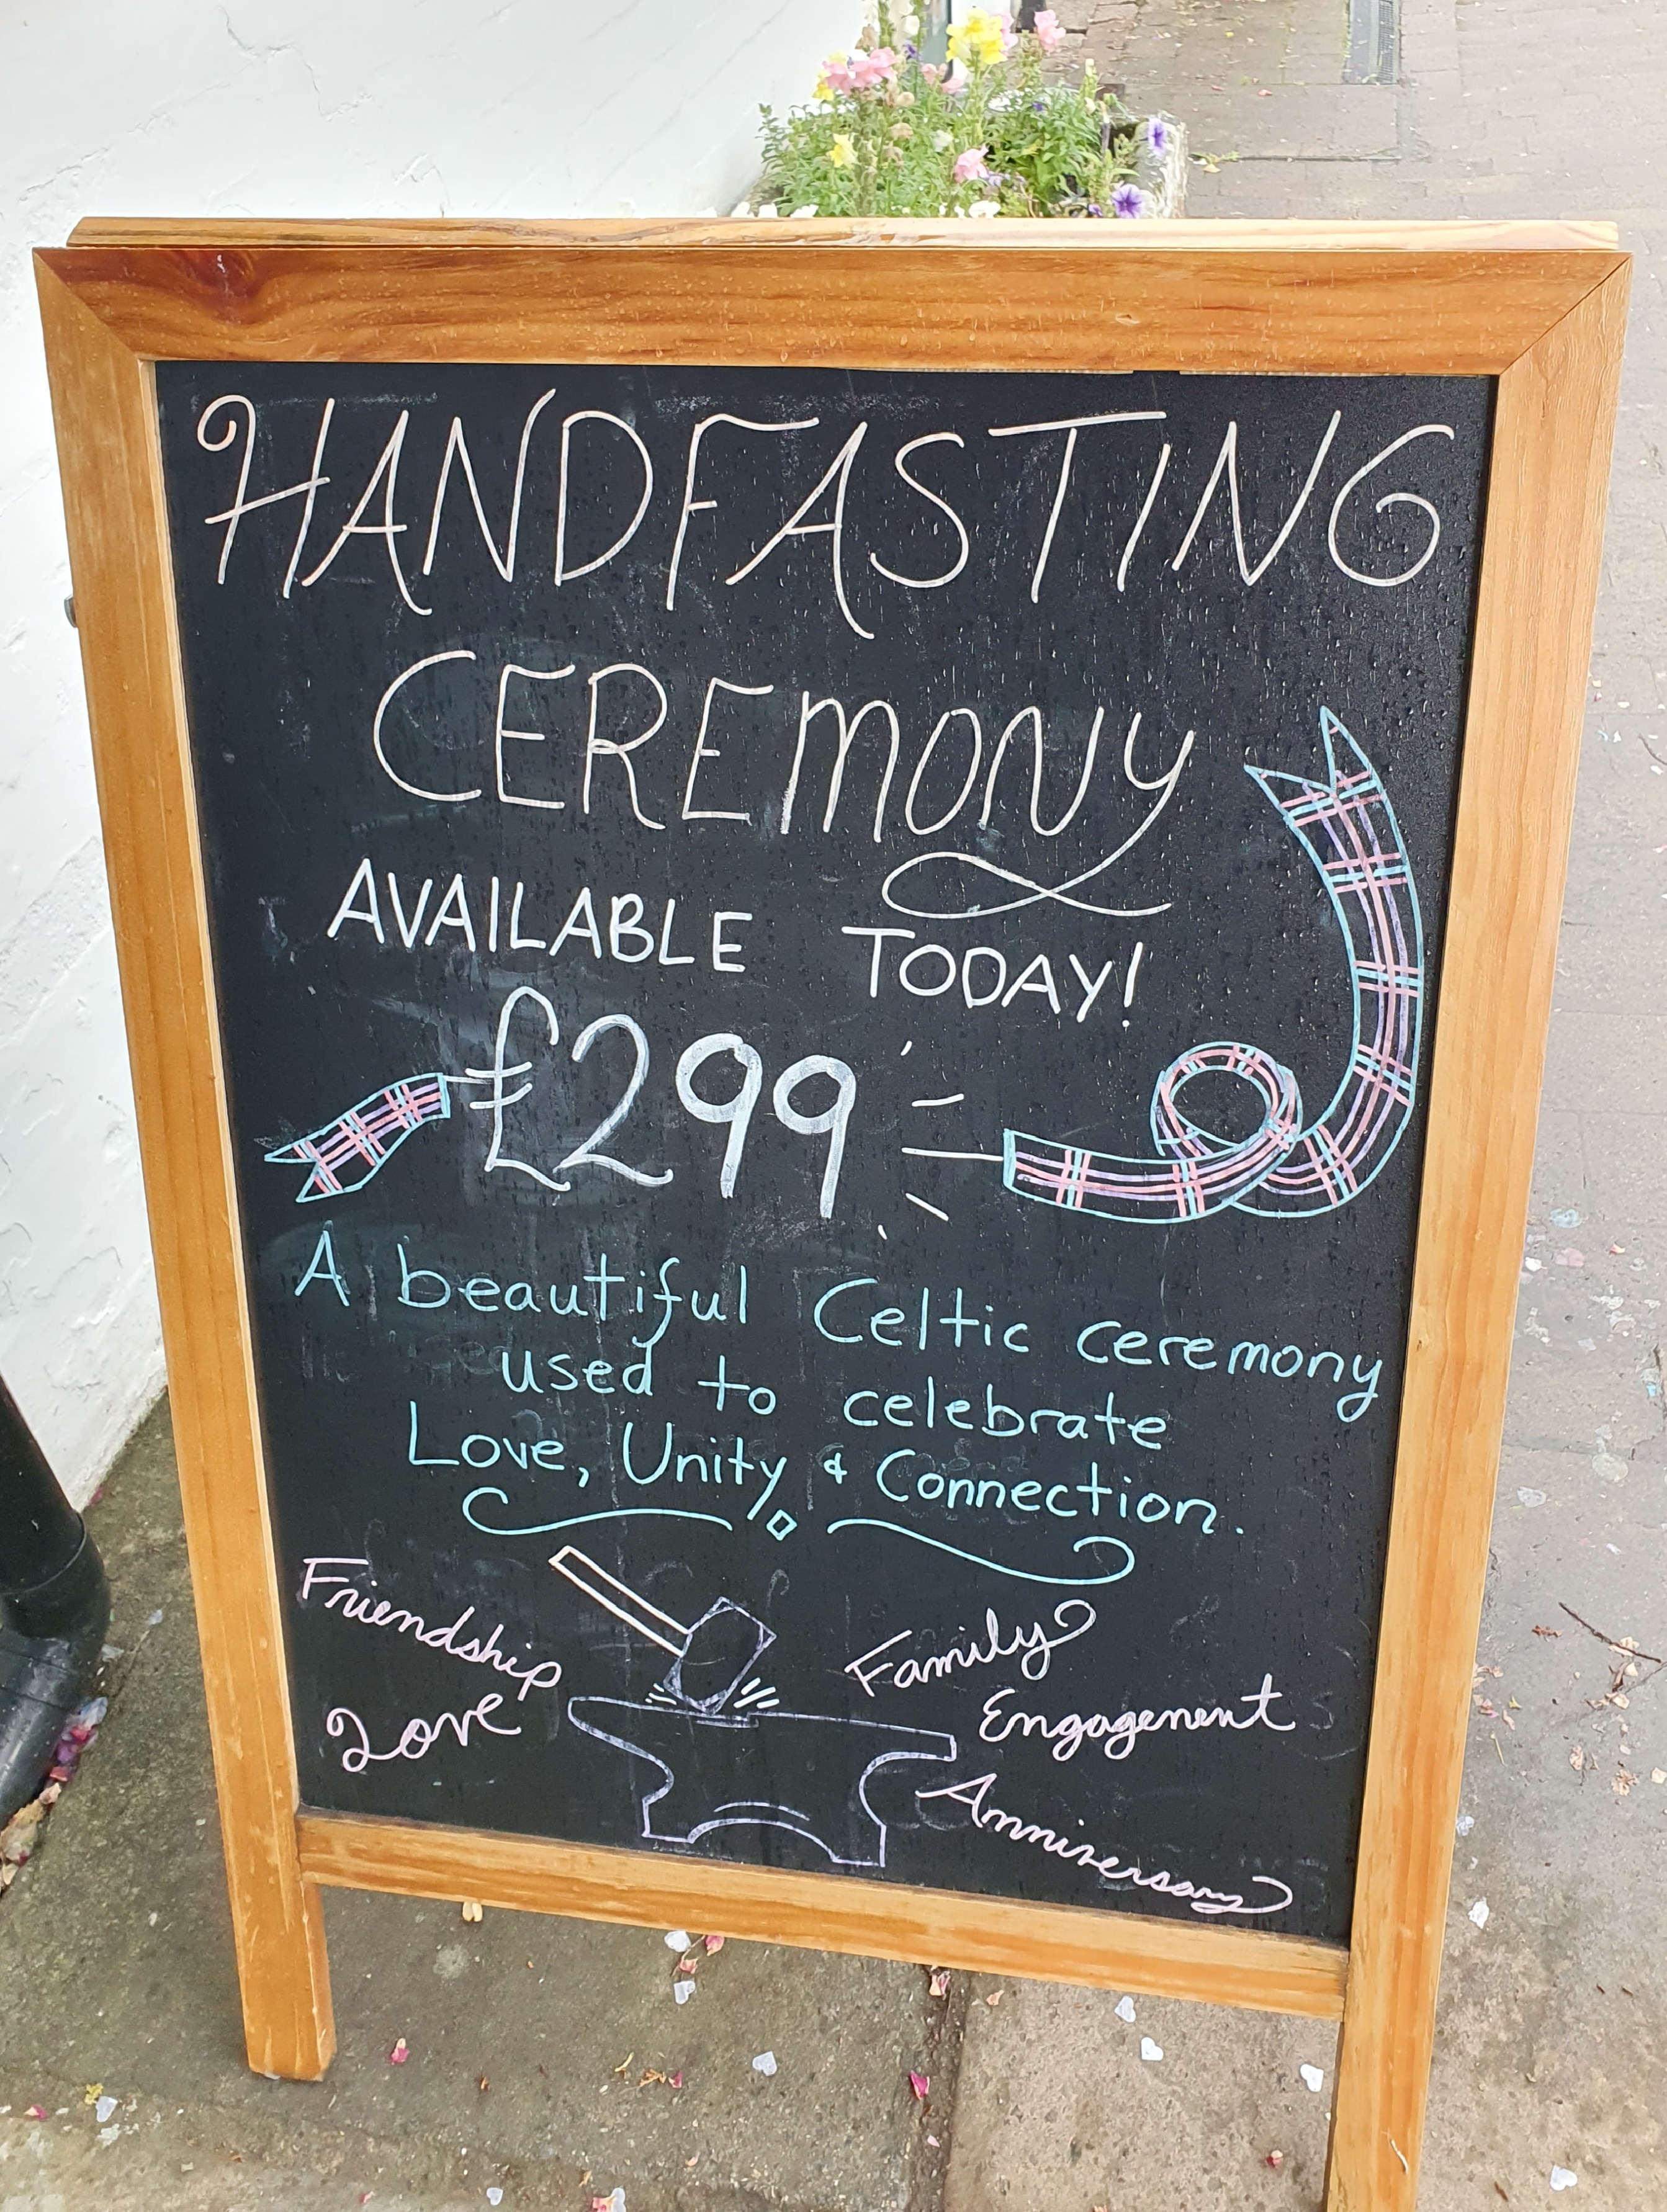 HANDFASTING
CEREMONY
AVAILABLE TODAY!
£299
A beautiful Celtic ceremony
used to celebrate
Love, Unity & Connection.
Friendship
Love
Family
Engagement
Anniversary